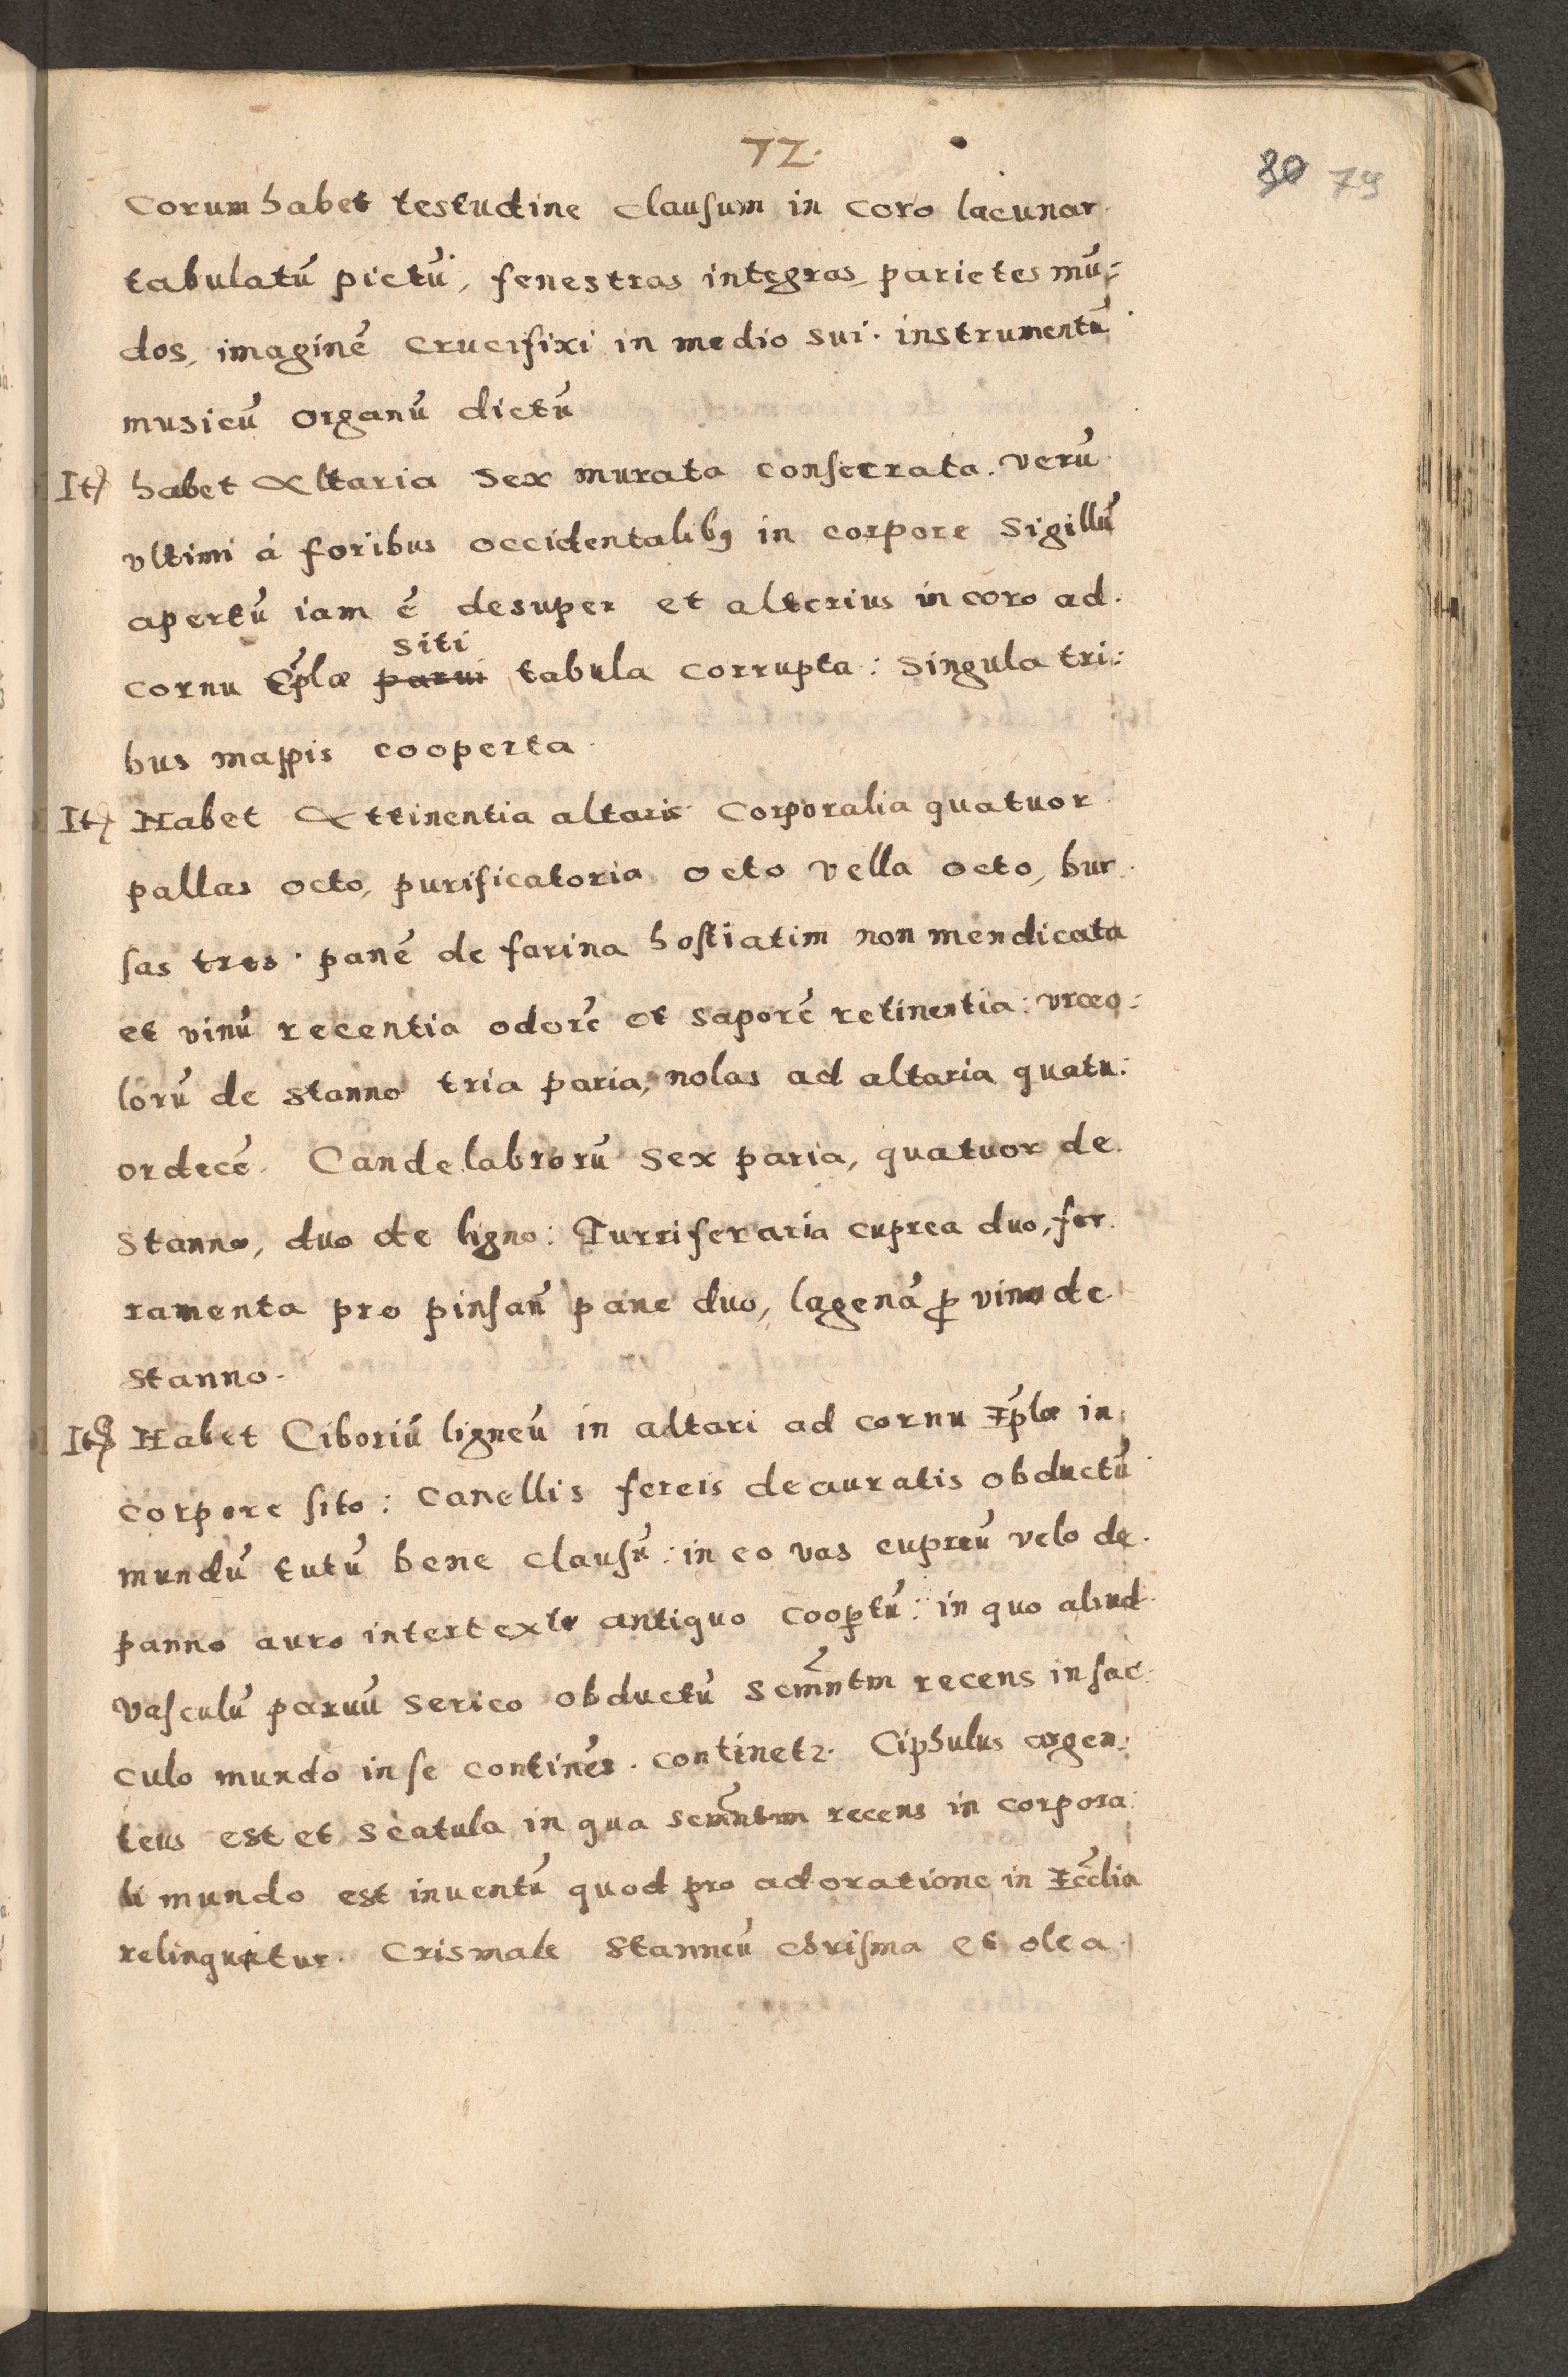 72.
80 79
Corum habet testudine clausum in coro lacunar
tabulatū pictū, fenestras integras, parietes mū:
dos, imaginē Crucifixi in medio sui. instrumentū
musicū organū dictū
It) habet Altaria sex murata consecrata. verū
vltimi á foribus occidentalibꝯ in corpore sigillū
apertū iam ē desuper et alterius in coro ad
siti
cornu Ep̄læ parui tabula corrupta: singula tri:
bus mappis cooperta.
It) Habet Attinentia altaris Corporalia quatuor
pallas octo, purificatoria octo vella octo, bur
sas tres. panē de farina hostiatim non mendicata
et vinū recentia odorē et saporē retinentia: vrceo:
lorū de stanno tria paria, nolas ad altaria quatu:
ordecē. Candelabrorū sex paria, quatuor de
stanno, duo de ligno: Turriferaria cuprea duo, fer
ramenta pro pinsan̄ pane duo, lagenā ꝓ vino de
stanno.
It) Habet Ciboriū ligneū in altari ad cornu Ep̄læ in
corpore sito: canellis fereis deauratis obductū
mundū tutū bene clausū: in eo vas cupreū velo de
panno auro intertexto antiquo coop̱tū: in quo aliud
vasculū paruū serico obductū scm̄ntm recens in sac
culo mundo in se continēs. continetꝛ. Ciphulus argen:
teus est et scatula in qua scm̄ntm recens in corpora
li mundo est inuentū quod pro adoratione in Eccl̄ia
relinquitur. Crismale stanneū chrisma et olea